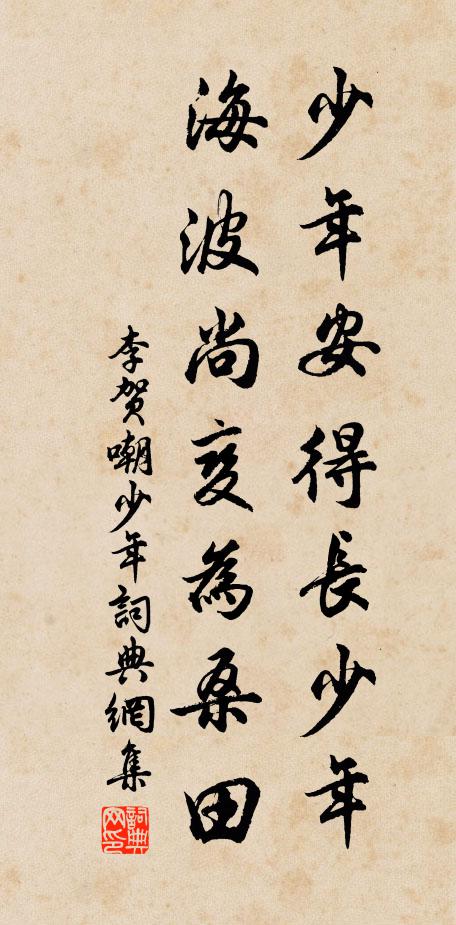 少年安得長少年
海波尚变為桑田
李贺嘲少年詞典網集
詞典网印